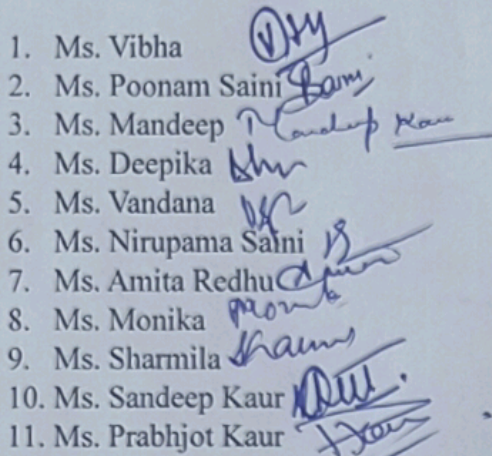 1. Ms. Vibha
2. Ms. Poonam Saini Saini
3. Ms. Mandeep Mandeep Kaur
4. Ms. Deepika
5. Ms. Vandana
6. Ms. Nirupama Saini
7. Ms. Amita Redhu
8. Ms. Monika Monika
9. Ms. Sharmila
10. Ms. Sandeep Kaur
11. Ms. Prabhjot Kaur